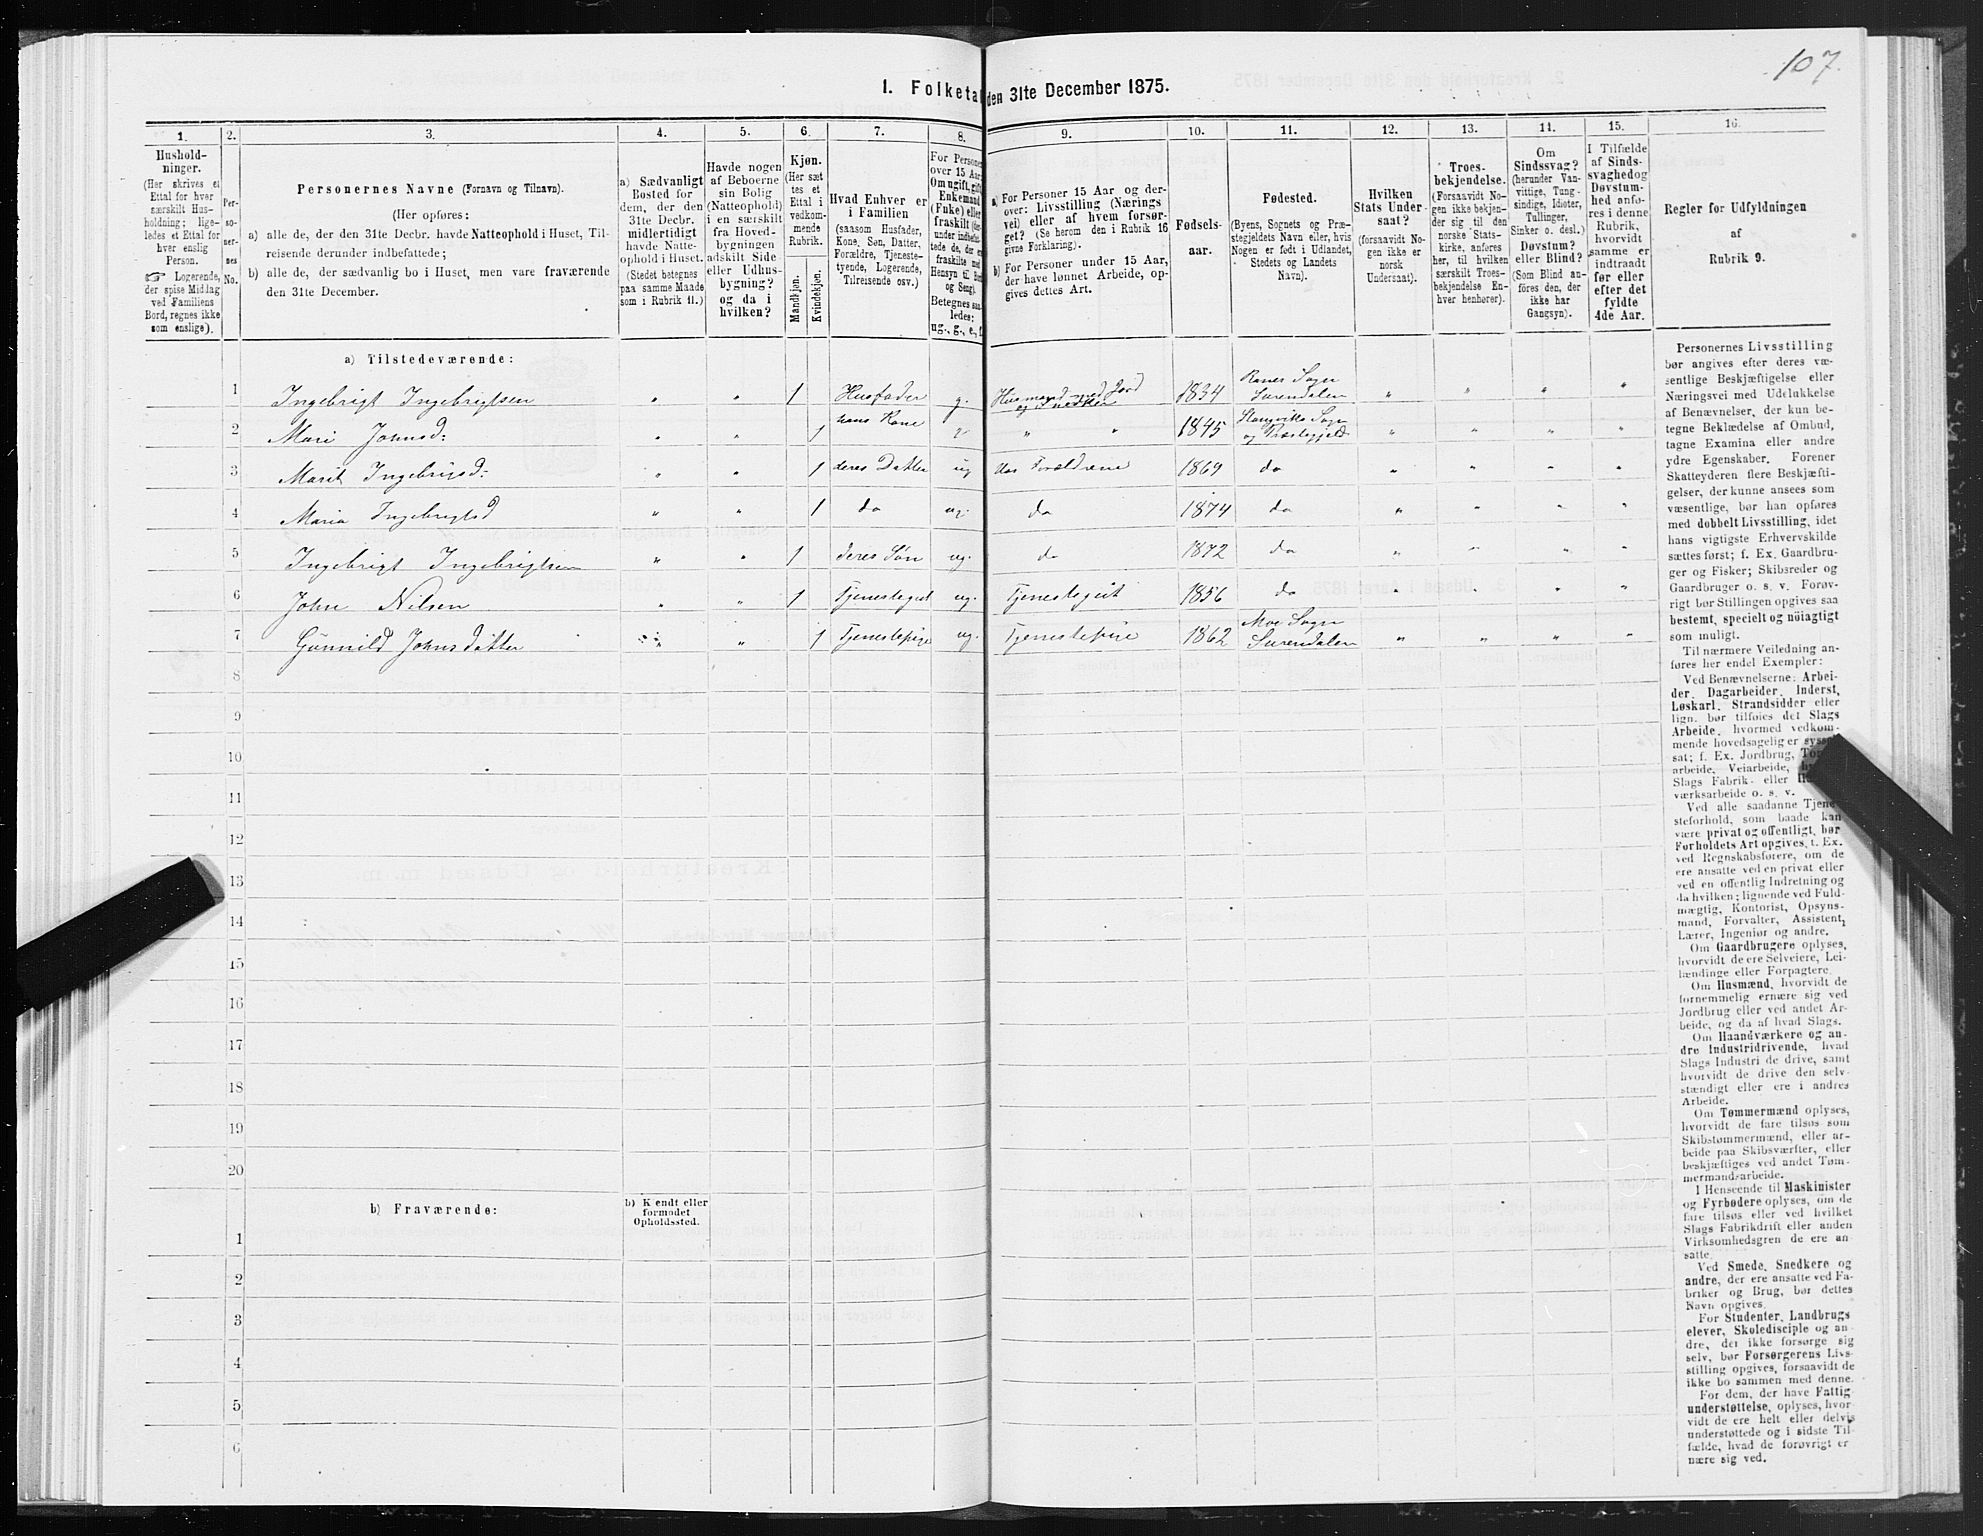 107.
1. Folketa den 31te December 1875.
1. 2. 3. 4. 5. 6. 7. 8. 9. 10. 11. 12. 13. 14. 15. 16.
Hushold-
ninger.
(Her skrives et
Ettal for hver
særskilt Hus-
holdning; lige-
ledes et Ettal for
hver enslig
Person.
☞ Logerende,
der spise Middag
ved Familiens
Bord, regnes ikke
som enslige).
Per-
so-
ner-
nes
No.
Personernes Navne (Fornavn og Tilnavn).
(Her opføres:
a) alle de, der den 31te Decbr. havde Natteophold i Huset, Til-
reisende derunder indbefattede;
b) alle de, der sædvanlig bo i Huset, men vare fraværende
den 31te December.
a) Sædvanligt
Bosted for
dem, der den
31te Decbr.
midlertidigt
havde Natte-
ophold i Huset.
(Stedet betegnes
paa samme Maade
som i Rubrik 11.)
Havde nogen
af Beboerne
sin Bolig
(Natteophold)
i en særskilt
fra Hoved-
bygningen
adskilt Side-
eller Udhus-
bygning?
og da i
hvilken?
Kjøn.
(Her sæt
tes et
Ettal i
vedkom-
mende
Rubrik.
Mandkjøn.
Kvindekjøn.
Hvad Enhver er
i Familien
(saasom Husfader,
Kone, Søn, Datter,
Forældre, Tjeneste-
tyende, Logerende,
Tilreisende osv.)
For Persone
over 15 Aar
Om ugift, gift
Enkemand
(Enke) eller
fraskilt
Betegnes saa-
ledes:
ug., g., e., f.
a) For Personer 15 Aar og der-
over: Livsstilling (Nærings
vei) eller af hvem forsør-
get? (Se herom den i Rubrik 16
givne Forklaring).
b) For Personer under 15 Aar,
der have lønnet Arbeide, op-
gives dettes Art.
Fødsels-
aar.
Fødested.
(Byens, Sognets og Præ-
stegjeldets Navn eller, hvis
Nogen er født i Udlandet,
Stedets og Landets
Navn).
Hvilken
Stats Under-
saat?
(forsaavidt No-
gen ikke er
norsk
Undersaat).
Troes-
bekjendelse.
(Forsaavidt No-
gen ikke bekjen-
der sig til den
norske Stats-
kirke, anføres
her, til hvilken
særskilt Troes-
bekjendelse En-
hver henhører).
Om
Sindssvag?
(herunder Van-
vittige, Tung-
sindige, Idioter,
Tullinger,
Sinker o. desl.)
Døvstum?
eller Blind?
(Som Blind an-
føres den, der
ikke har
Gangsyn).
I Tilfælde
af Sinds-
svaghed og
Døvstum-
hed anfø-
res i denne
Rubrik,
hvorvidt
samme er
indtraadt
før eller
efter det
fyldte
4de Aar.
Regler for Udfyldningen
af
Rubrik 9.
a) Tilstedeværende:
1 Ingebrigt Ingebrigtsen " " 1 Husfader g. Husmand med Jord og Snedker 1834 Ranes Sogn Surendalen " " " "
2 Mari Johnsd: " " 1 hans Kone g " " 1845 Stangviks Sogn og Præstegjeld " " " "
3 Marit Ingebrigsd: " " 1 deres Datter ug Hos Forældrene 1869 do " " " "
4 Maria Ingebrigtsd " " 1 do ug. do 1874 do " " " "
5 Ingebrigt Ingebrigtsen " " 1 deres Søn ug. do 1872 do " " " "
6 John Nilsen " " 1 Tjenestegut ug. Tjenestegut 1856 do " " " "
7 Gunnild Johnsdatter " " 1 Tjenestepige ug. Tjenestepige 1862 Moe Sogn Surendalen " " " "
8
9
10
11
12
13
14
15
16
17
18
19
20
b) Fraværende:
b) Kjendt eller
formodet
Opholdssted.
1
2
3
4
5
6
Personernes Livsstilling
bør angives efter deres væ-
sentlige Beskjæftigelse eller
Næringsvei med Udelukkelse
af Benævnelser, der kun be-
tegne Beklædelse af Ombud,
tagne Examina eller andre
ydre Egenskaber. Forener
Skatteyderen flere Beskjæfti-
gelser, der kunne ansees som
væsentlige, bør han opføres
med dobbelt Livsstilling, idet
hans vigtigste Erhvervskilde
sættes først; f. Ex. Gaardbru-
ger og Fisker; Skibsreder og
Gaardbruger o. s. v. Forøv-
rigt bør Stillingen opgives saa
bestemt, specielt og nøiagtigt
som muligt.
Til nærmere Veiledning an-
føres her endel Exempler:
Ved Benævnelserne: Arbei-
der, Dagarbeider, Inderst,
Løskarl, Strandsidder eller
lign. bør tilføies det Slags
Arbeide, hvormed vedkom-
mende hovedsagelig er syssel
sat; f. Ex. Jordbrug,
arbeide, Veiarbeide,
Slags Fabrik- eller
værksarbeide o. s. v.
Ved alle saadanne Tjene
steforhold, som baade kan
være privat og offentligt, bør
Forholdets Art opgives, f. Ex.
ved Regnskabsførere, om de
ere ansatte ved en privat eller
ved en offentlig Indretning og
da hvilken; lignende ved Fuld-
mægtig, Kontorist, Opsyns-
mand, Forvalter, Assistent,
Lærer, Ingeniør og andre.
Om Gaardbrugere oplyses,
hvorvidt de ere Selveiere, Lei-
lændinge eller Forpagtere.
Om Husmænd, hvorvidt de
fornemmelig ernære sig ved
Jordbrug eller ved andet Ar-
beide, og da af hvad Slags.
Om Haandværkere og an-
dre Industridrivende, hvad
Slags Industri de drive, samt
hvorvidt de drive den selv-
stændigt eller ere i andres
Arbeide.
Om Tømmermænd oplyses,
hvorvidt de fare tilsøs som
Skibstømmermænd, eller ar-
beide paa Skibsværfter, eller
beskjæftiges ved andet Tøm-
mermandsarbeide.
I Henseende til Maskinister
og Fyrbødere oplyses, om de
fare tilsøs eller ved hvilket
Slags Fabrikdrift eller anden
Virksomhedsgren de ere an-
satte.
Ved Smede, Snedkere og
andre, der ere ansatte ved Fa-
briker og Brug, bør dettes
Navn opgives.
For Studenter, Landbrugs
elever, Skoledisciple og an-
dre, der ikke forsørge sig
selv, bør Forsørgerens Livs-
stilling opgives, forsaavidt de
ikke bo sammen med denne.
For dem, der have Fattig-
understøttelse, oplyses, hvor-
vidt de ere helt eller delvis
understøttede og i sidste Til-
fælde, hvad de forøvrigt er
nære sig ved.